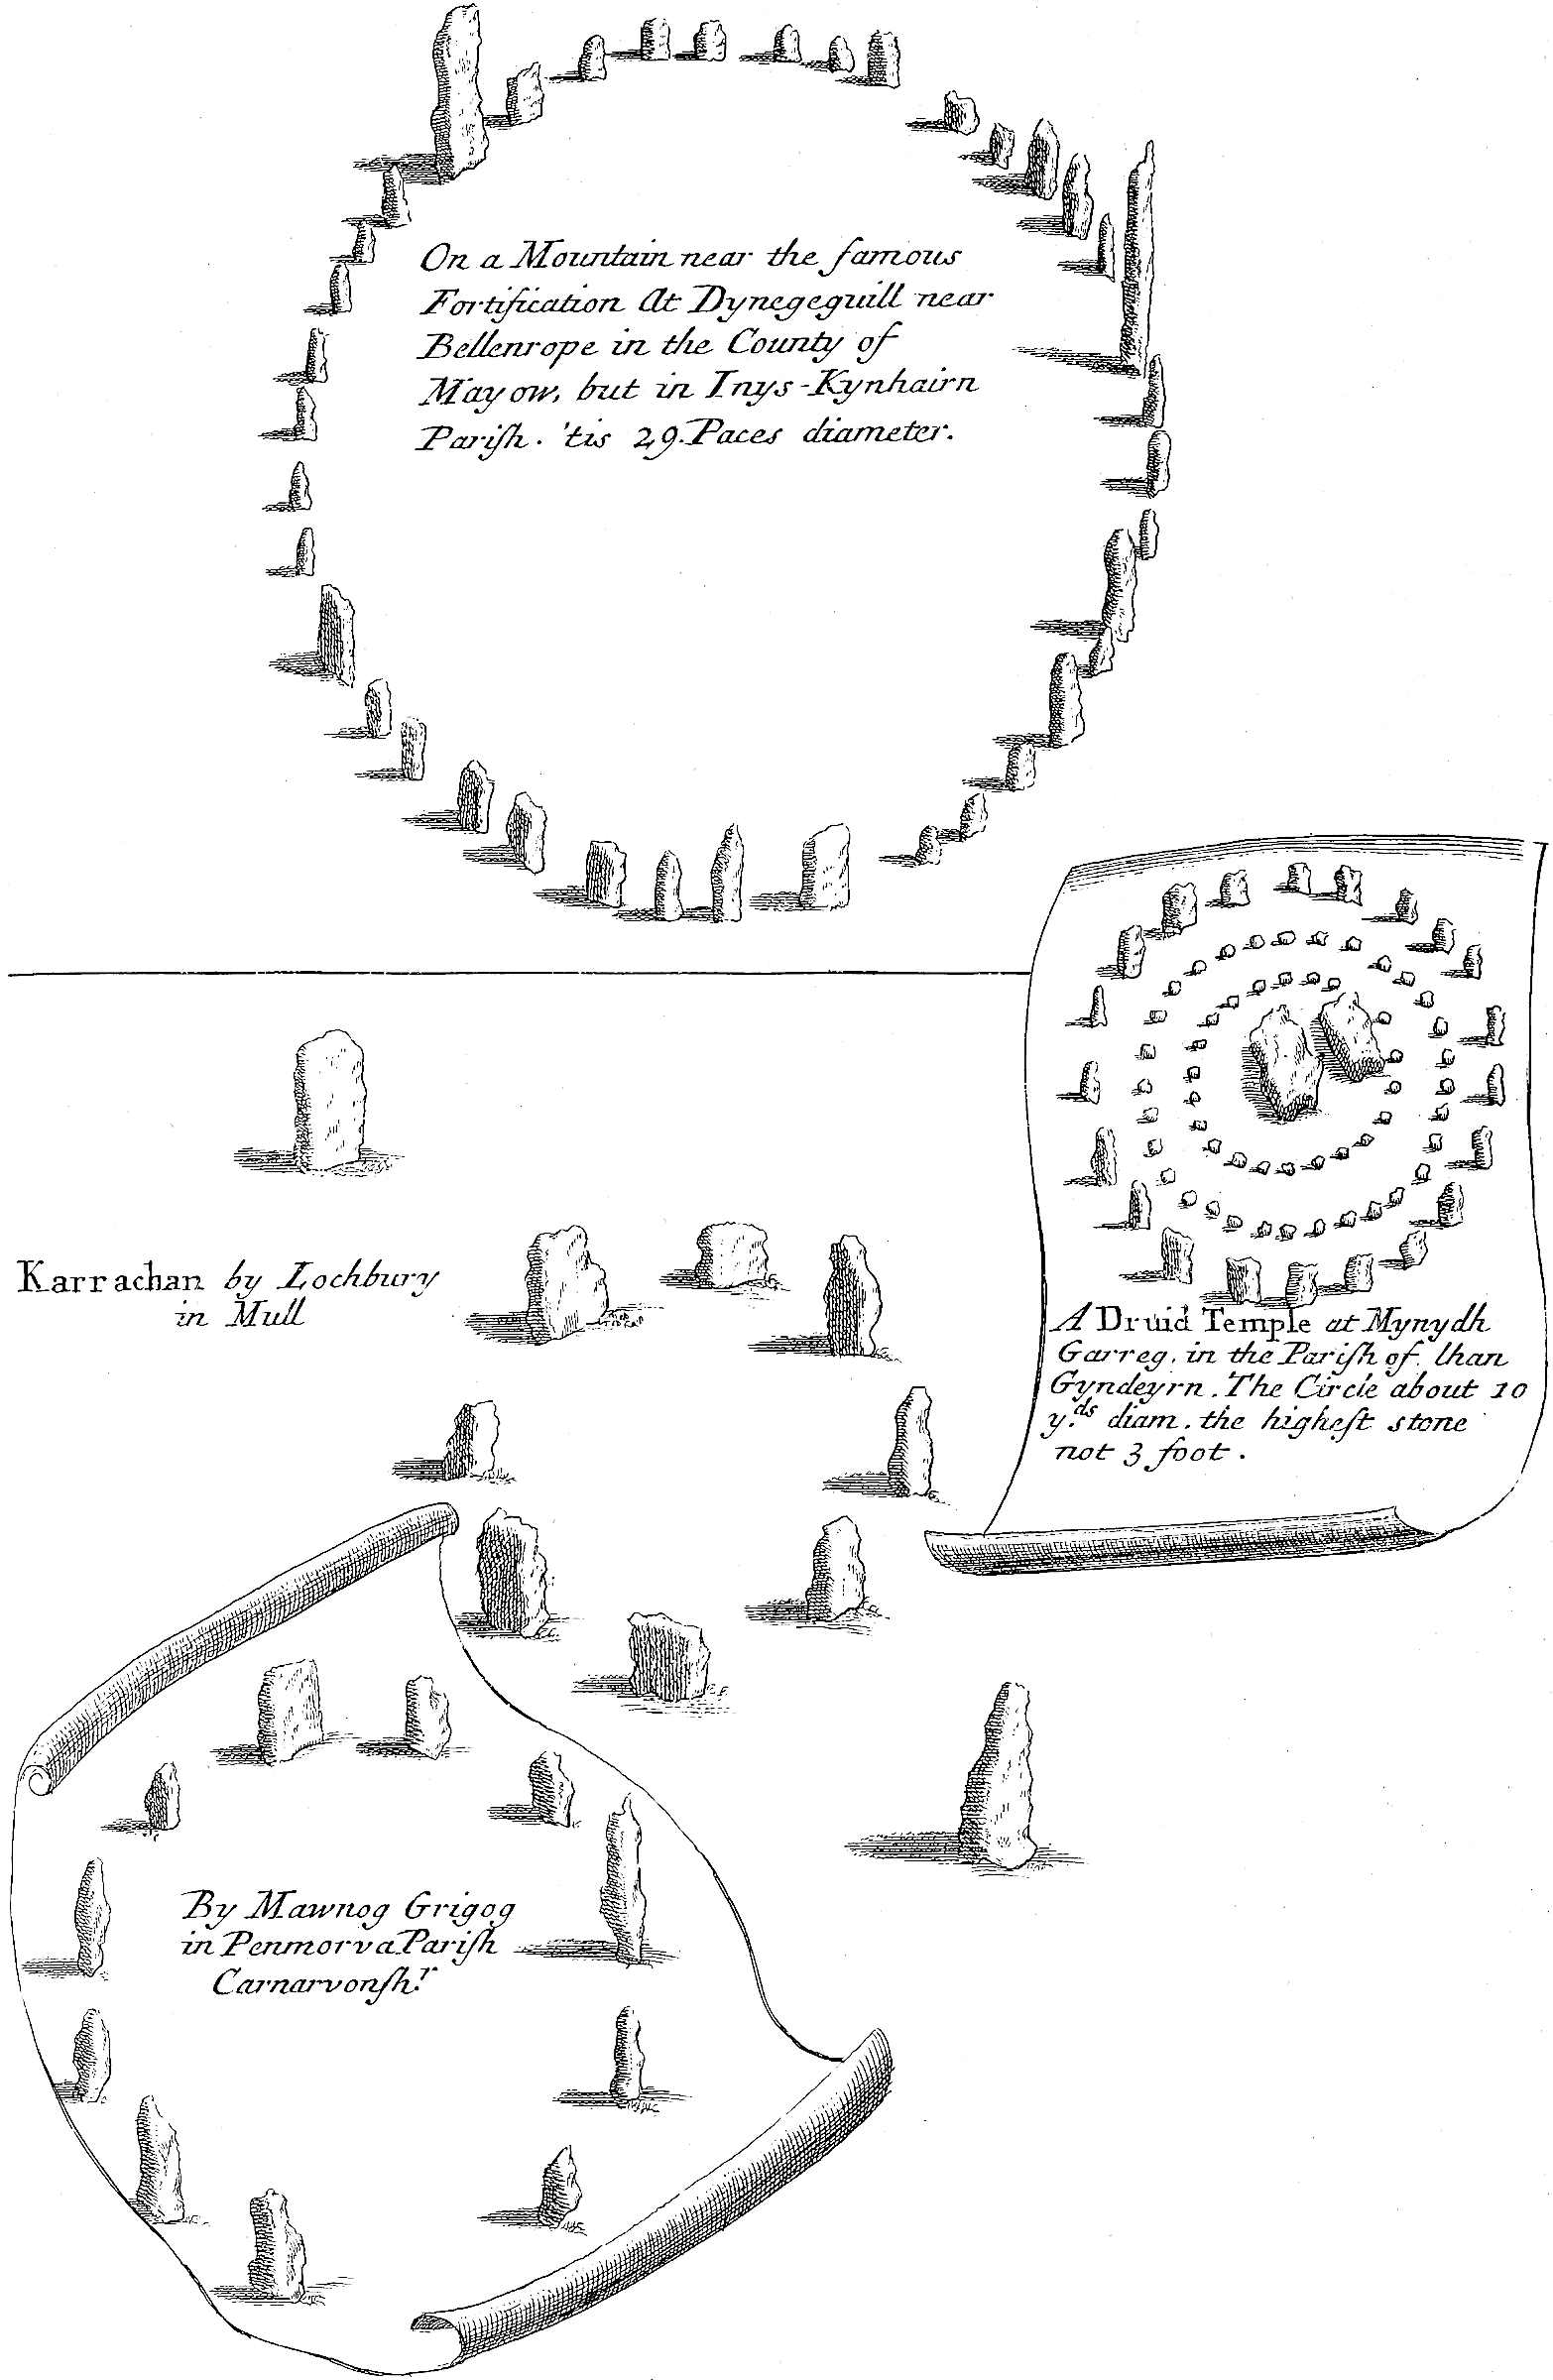 On a Mountain near the famous
Fortification At Dynegeguill near
Bellenrope in the County of
Mayow, but in Inys-Kynhairn
Pariſh. 'tis 29. Paces diameter.
Karrachan by Lochbury
in Mull
A Druid Temple at Mynydh
Garreg, in the Pariſh of lhan
Gyndeyrn. The Circle about 10
y.ds diam. the higheſt stone
not 3 foot.
By Mawnog Grigog
in Penmorva Pariſh
Carnarvonſh.r